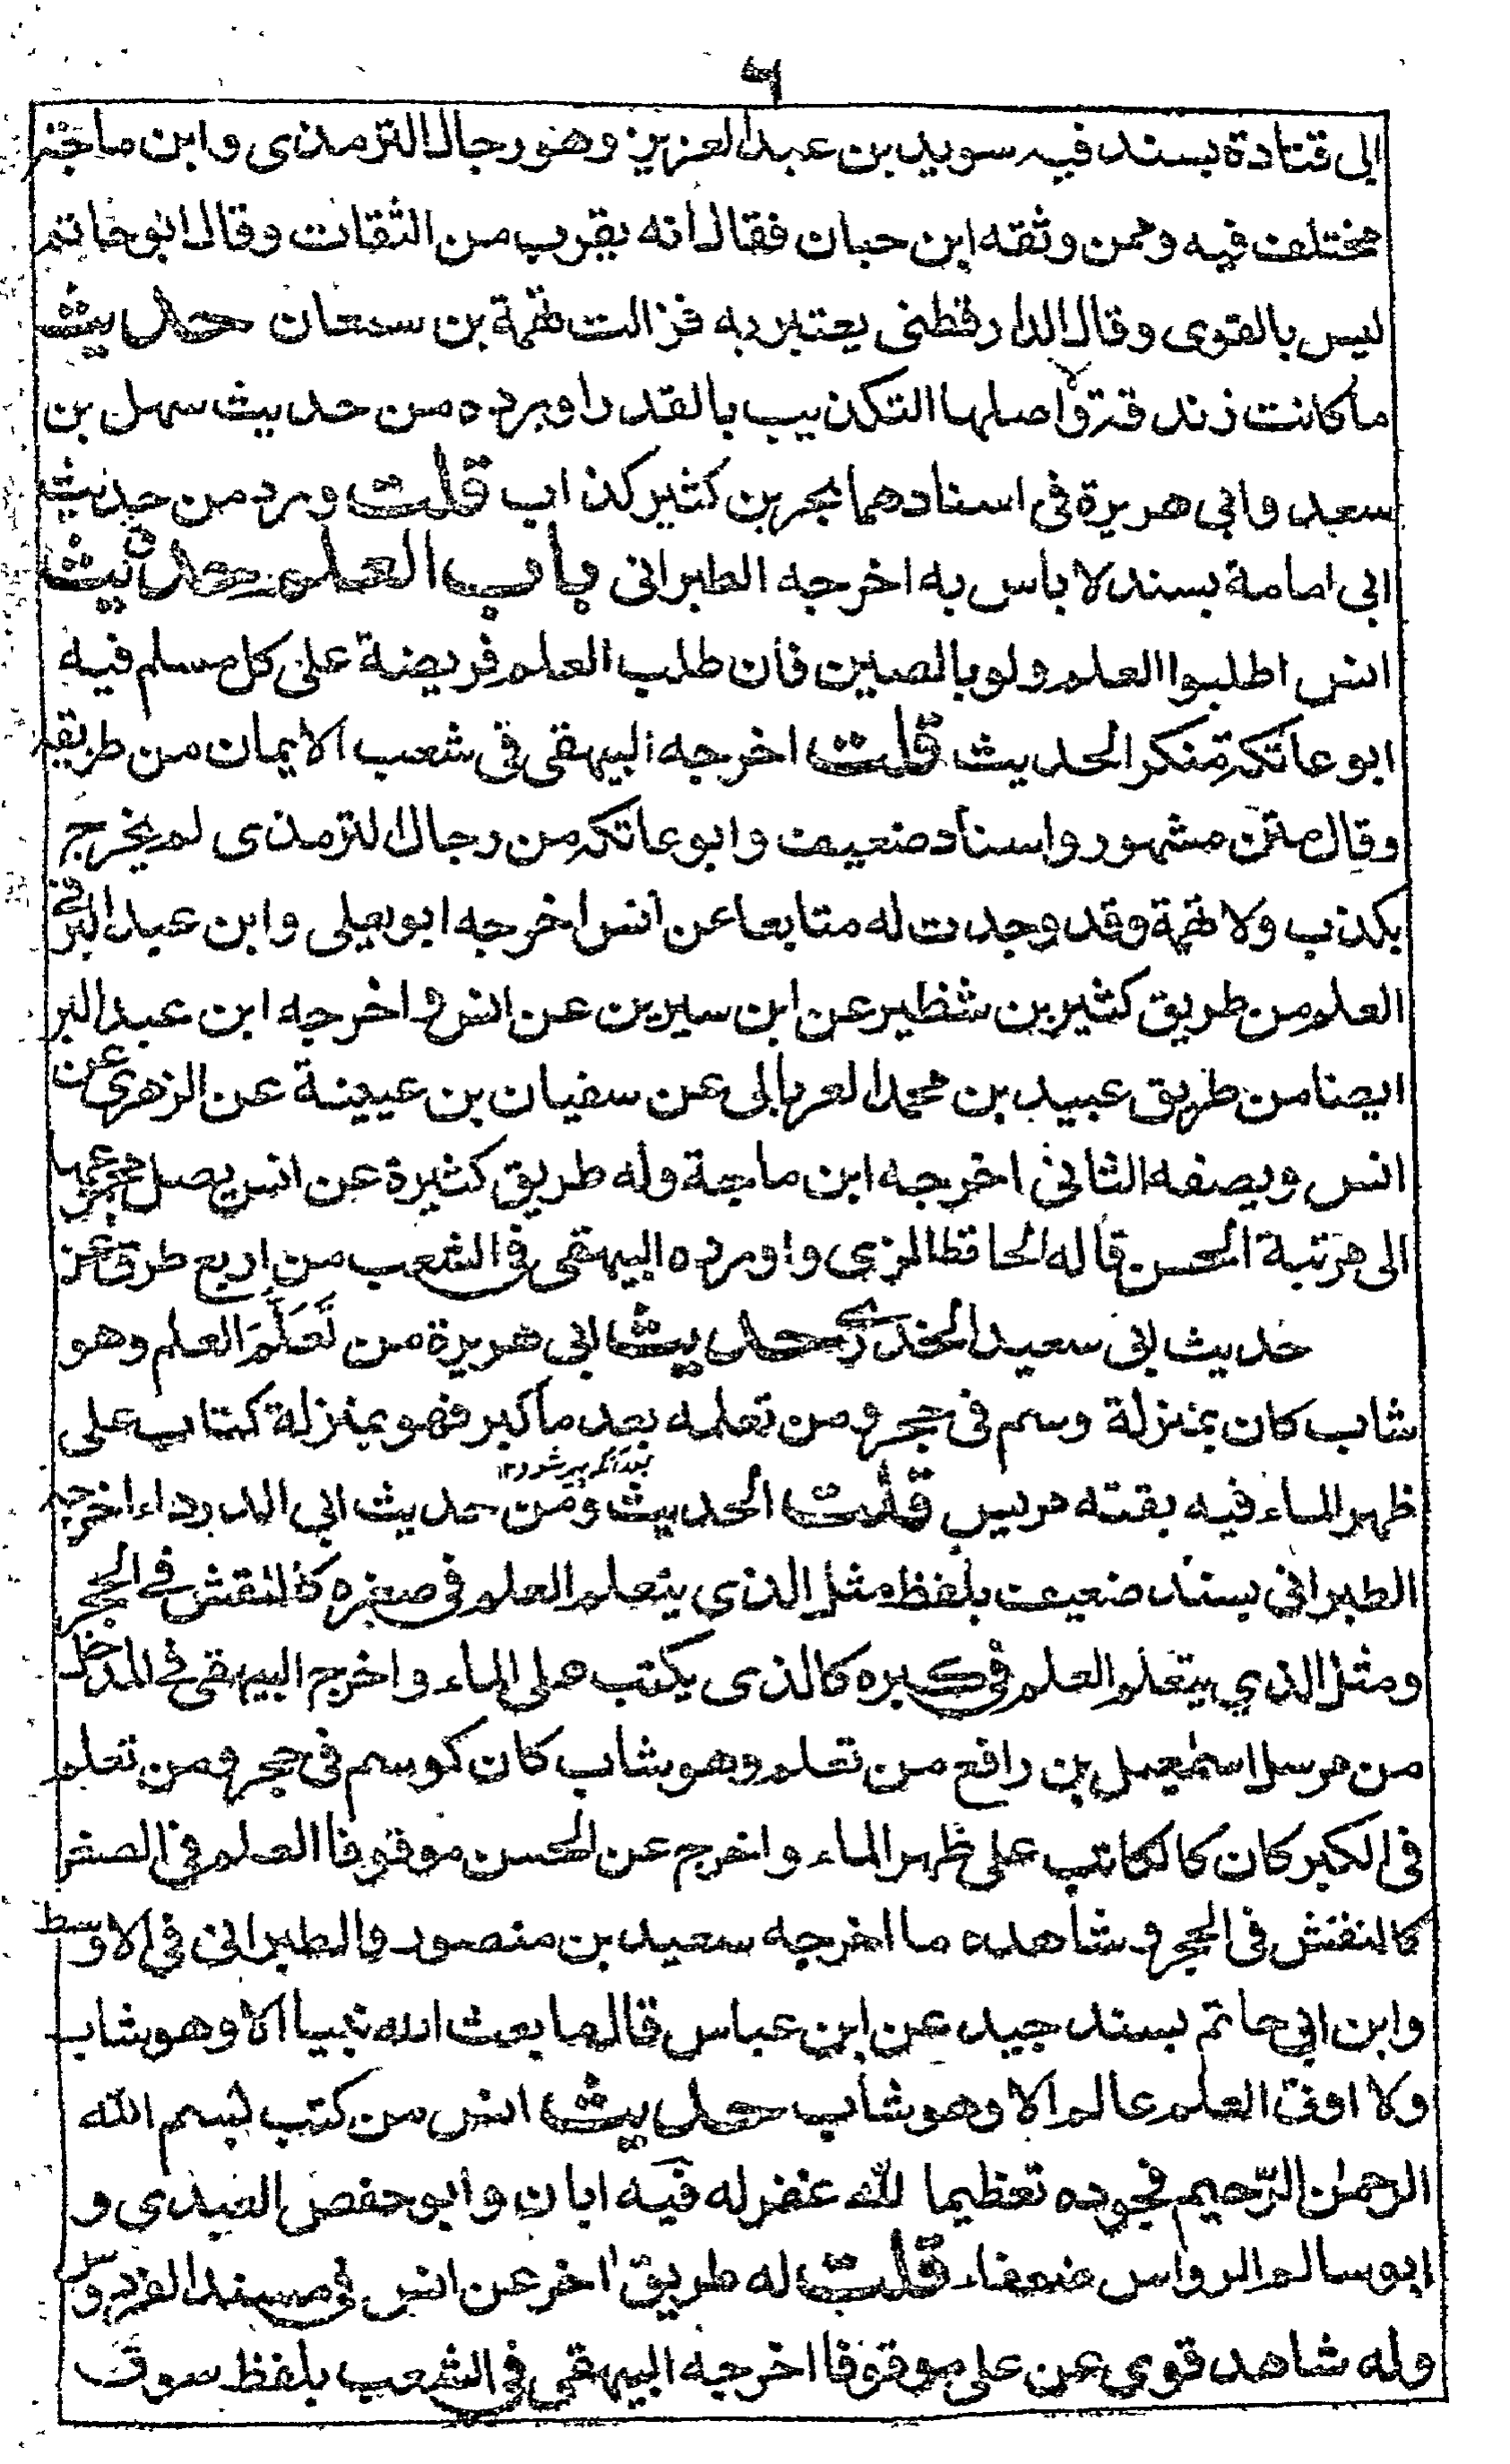 ٦
الى قتادة بسند فيه سويد بن عبد العزيز وهو رجال الترمذى وابن ماجة
مختلف فيه وممن وثقه ابن حبان فقال انه يقرب من الثقات وقال ابو حاتم
ليس بالقوى وقال الدارقطنى يعتبر به فزالت تهمة بن سمعان حديث
ما كانت زندقة الا واصلها التكذيب بالقدر اورده من حديث سهل بن
سعد وابى هريرة فى اسنادهما بحر بن كثير كذاب قلت ورد من حديث
ابى امامة بسند لا باس به اخرجه الطبرانى باب العلم حديث
انس اطلبوا العلم ولو بالصين فان طلب العلم فريضة على كل مسلم فيه
ابو عاتكة منكر الحديث قلت اخرجه البيهقى فى شعب الايمان من طريقه
وقال متن مشهور واسناد ضعيف وابو عاتكة من رجال الترمذى لم يخرج
بكذب ولا تهمة وقد وجدت له متابعا عن انس اخرجه ابو يعلى وابن عبد البر فى
العلم من طريق كثير بن شظير عن ابن سيرين عن انس واخرجه ابن عبد البر
ايضا من طريق عبيد بن محمد العريابى عن سفيان بن عيينة عن الزهرى عن
انس وبصفه الثانى اخرجه ابن ماجة وله طريق كثيرة عن انس يصل مجموعها
الى مرتبة الحسن قاله الحافظ المزى واورده البيهقى فى الشعب من اربع طرق عن
حديث ابى سعيد الخدرى حديث ابى هريرة من تَعَلَّمَ العلم وهو
شاب كان بمنزلة وسم فى حجر ومن تعلمه بعد ما كبر فهو بمنزلة كتاب على
ظهر الماء فيه بقته مريس قلت الحديث ومن حديث ابى الدرداء اخرجه
الطبرانى بسند ضعيف بلفظ مثل الذى يتعلم العلم فى صغره كالنقش فى الحجر
ومثل الذى يتعلم العلم فى كبره كالذى يكتب على الماء واخرج البيهقى فى المدخل
من مرسل اسمٰعيل بن رافع من تعلم وهو شاب كان كوسم فى حجر ومن تعلم
فى الكبر كان كالكاتب على ظهر الماء واخرج عن الحسن موقوفا العلم فى الصغر
كالنقش فى الحجر وشاهده ما اخرجه سعيد بن منصور والطبرانى فى الاوسط
وابن ابى حاتم بسند جيد عن ابن عباس قال ما بعث الله نبيا الا وهو شاب
ولا اوتى العلم عالم الا وهو شاب حديث انس من كتب بسم الله
الرحمٰن الرّحيم فجوده تعظيما لله غفر له فيه ابان وابو حفص العبدى و
ابو سالم الرواس ضعفاء قلت له طريق اخر عن انس فى مسند الفردوس
وله شاهد قوى عن على موقوفا اخرجه البيهقى فى الشعب بلفظ سوق